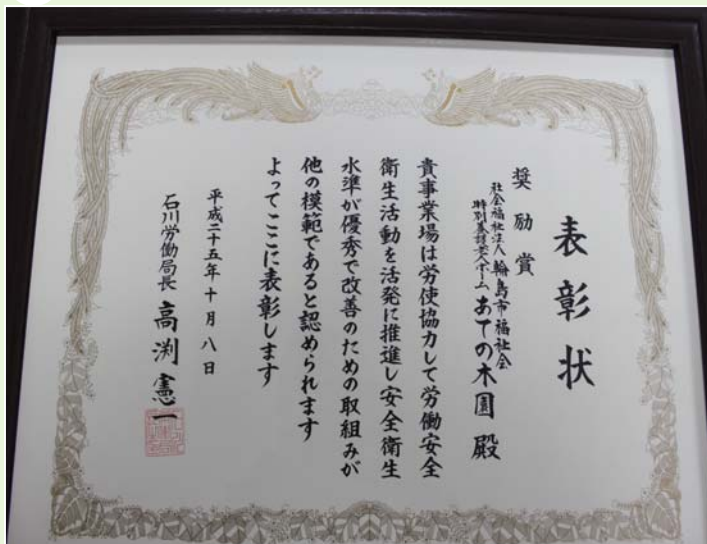 表彰状
奨励賞
社会福祉法人輪島市福祉会
特別養護老人ホーム
あての木園 殿
貴事業場は労使協力して労働安全
衛生活動を活発に推進し安全衛生
水準が優秀で改善のための取組みが
他の模範であると認められます
よってここに表彰します
平成二十五年十月八日
石川労働局長 高渕憲一